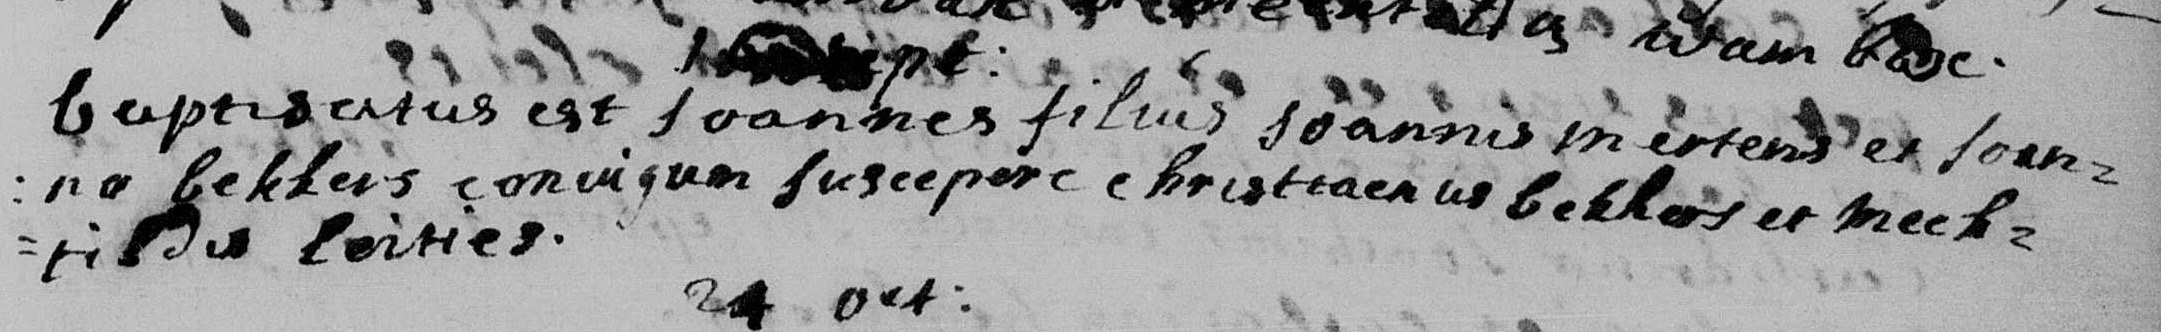 wam base.
sept:
baptisatus est Joannes filius Joannis mertens et Joan=
:na bekkers coniugum suscepere christiaenus bekkers et mech=
=tildis loities.
24 oct: